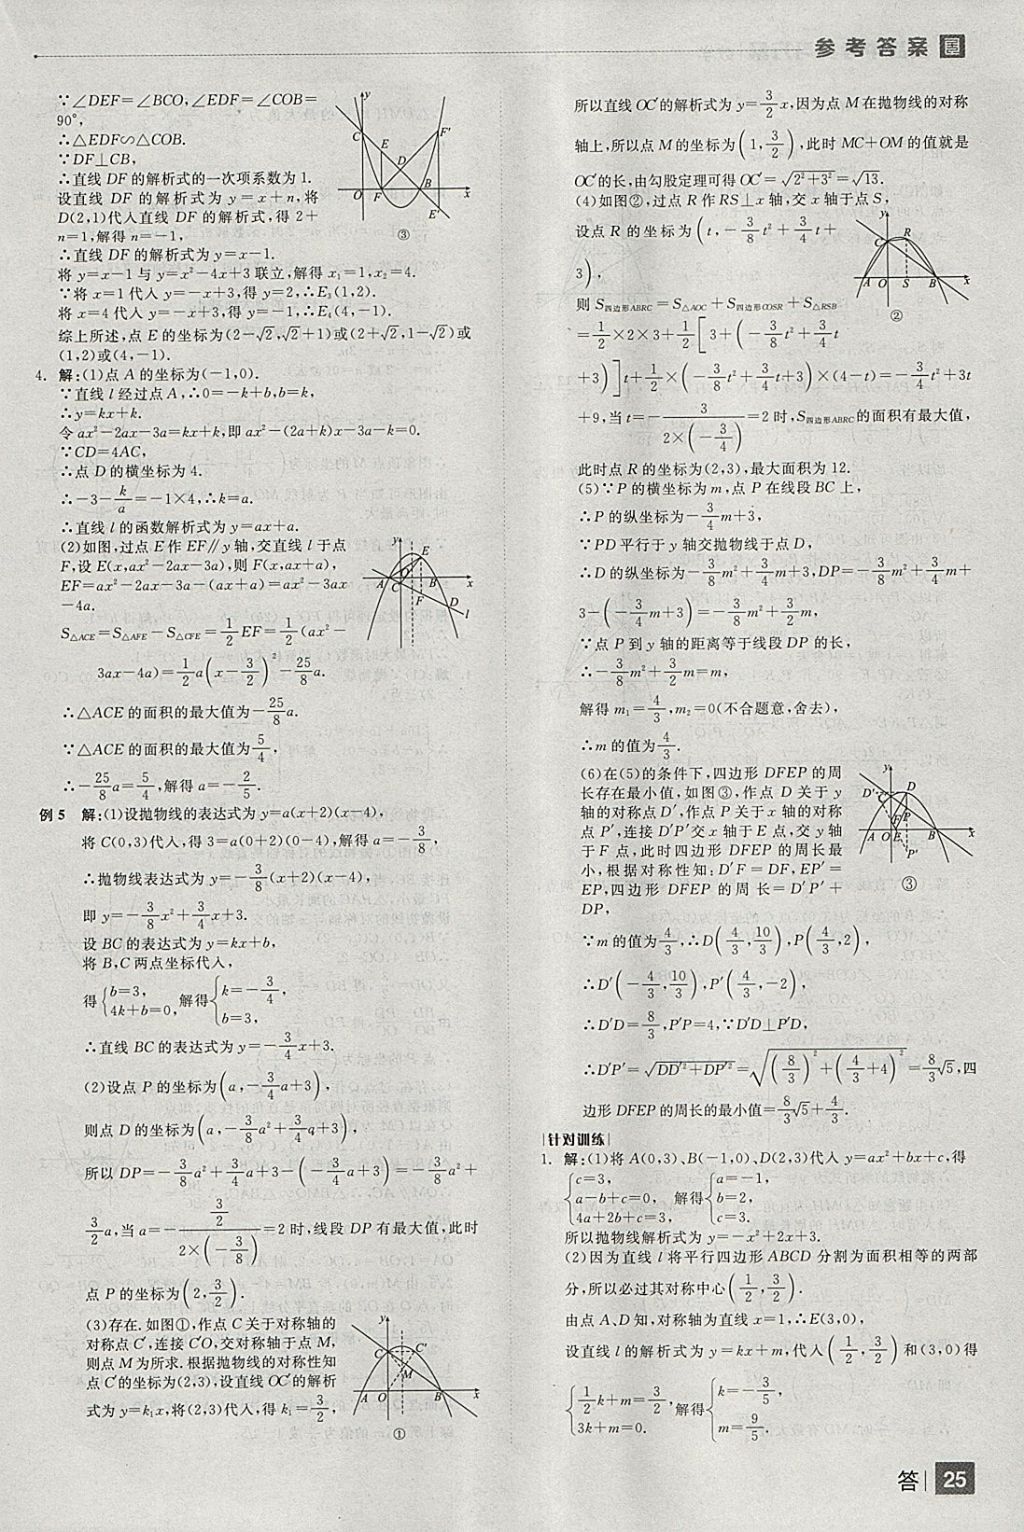 参考答案
∵∠DEF=∠BCO,∠EDF=∠COB=
90°,
∴△EDF∽△COB.
∵DF⊥CB,
∴直线 DF 的解析式的一次项系数为 1.
设直线 DF 的解析式为 y=x+n,将
D(2,1)代入直线 DF 的解析式,得 2+
n=1,解得 n=-1,
∴直线 DF 的解析式为 y=x-1.
将 y=x-1 与 y=x²-4x+3 联立,解得 x₁=1,x₂=4.
∵将 x=1 代入 y=-x+3,得 y=2,∴E₃(1,2).
将 x=4 代入 y=-x+3,得 y=-1,∴E₄(4,-1).
综上所述,点 E 的坐标为(2-√2,√2+1)或(2+√2,1-√2)或
(1,2)或(4,-1).
③
4. 解:(1)点 A 的坐标为(-1,0).
∵直线 l 经过点 A,∴0=-k+b,b=k,
∴y=kx+k.
令 ax²-2ax-3a=kx+k,即 ax²-(2a+k)x-3a-k=0.
∵CD=4AC,
∴点 D 的横坐标为 4.
∴-3-k/a=-1×4,∴k=a.
∴直线 l 的函数解析式为 y=ax+a.
(2)如图,过点 E 作 EF∥y 轴,交直线 l 于点
F,设 E(x,ax²-2ax-3a),则 F(x,ax+a),
EF=ax²-2ax-3a-(ax+a)=ax²-3ax
-4a.
S△ACE=S△AFE-S△CFE=1/2EF=1/2(ax²-
3ax-4a)=1/2a(x-3/2)²-25/8a.
∴△ACE 的面积的最大值为-25/8a.
∵△ACE 的面积的最大值为5/4,
∴-25/8a=5/4,解得 a=-2/5.
例 5 解:(1)设抛物线的表达式为 y=a(x+2)(x-4),
将 C(0,3)代入,得 3=a(0+2)(0-4),解得 a=-3/8,
∴抛物线表达式为 y=-3/8(x+2)(x-4),
即 y=-3/8x²+3/4x+3.
设 BC 的表达式为 y=kx+b,
将 B,C 两点坐标代入,
得{b=3, 4k+b=0,解得{k=-3/4, b=3,
∴直线 BC 的表达式为 y=-3/4x+3.
(2)设点 P 的坐标为(a,-3/4a+3),
则点 D 的坐标为(a,-3/8a²+3/4q+3),
所以 DP=-3/8a²+3/4a+3-(-3/4a+3)=-3/8a²+
3/2a,当 a=-(3/2)/(2×(-3/8))=2 时,线段 DP 有最大值,此时
点 P 的坐标为(2,3/2).
(3)存在.如图①,作点 C 关于对称轴的
对称点 C′,连接 C′O,交对称轴于点 M,
则点 M 为所求.根据抛物线的对称性知
点 C′的坐标为(2,3),设直线 OC′的解析
式为 y=k₁x,将(2,3)代入,得 k₁=3/2,
①
所以直线 OC′的解析式为 y=3/2x,因为点 M 在抛物线的对称
轴上,所以点 M 的坐标为(1,3/2),此时 MC+OM 的值就是
OC′的长,由勾股定理可得 OC′=√(2²+3²)=√13.
(4)如图②,过点 R 作 RS⊥x 轴,交 x 轴于点 S,
设点 R 的坐标为(t,-3/8t²+3/4t+
3),
则 S四边形ABRC=S△AOC+S四边形COSR+S△RSB
=1/2×2×3+1/2[3+(-3/8t²+3/4t
+3)]t+1/2×(-3/8t²+3/4t+3)×(4-t)=-3/4t²+3t
+9,当 t=-3/(2×(-3/4))=2 时,S四边形ABRC的面积有最大值,
此时点 R 的坐标为(2,3),最大面积为 12.
②
(5)∵P 的横坐标为 m,点 P 在线段 BC 上,
∴P 的纵坐标为-3/4m+3,
∵PD 平行于 y 轴交抛物线于点 D,
∴D 的纵坐标为-3/8m²+3/4m+3,DP=-3/8m²+3/4m+
3-(-3/4m+3)=-3/8m²+3/2m,
∵点 P 到 y 轴的距离等于线段 DP 的长,
∴-3/8m²+3/2m=m,
解得 m₁=4/3,m₂=0(不合题意,舍去),
∴m 的值为4/3.
(6)在(5)的条件下,四边形 DFEP 的周
长存在最小值,如图③,作点 D 关于 y
轴的对称点 D′,作点 P 关于 x 轴的对称
点 P′,连接 D′P′交 x 轴于 E 点,交 y 轴
于 F 点,此时四边形 DFEP 的周长最
小,根据对称性知:D′F=DF,EP′=
EP,四边形 DFEP 的周长=D′P′+
DP,
③
∵m 的值为4/3,∴D(4/3,10/3),P(4/3,2),
∴D′(-4/3,10/3),P′(4/3,-2),
∴D′D=8/3,P′P=4,∵D′D⊥P′D,
∴D′P′=√(DD′²+DP′²)=√((8/3)²+(4/3+4)²)=8/3√5,四
边形 DFEP 的周长的最小值=8/3√5+4/3.
针对训练
1. 解:(1)将 A(0,3)、B(-1,0)、D(2,3)代入 y=ax²+bx+c,得
{c=3, a-b+c=0, 4a+2b+c=3, 解得{a=-1, b=2, c=3.
所以抛物线解析式为 y=-x²+2x+3.
(2)因为直线 l 将平行四边形 ABCD 分割为面积相等的两部
分,所以必过其对称中心(1/2,3/2).
由点 A,D 知,对称轴为直线 x=1,∴E(3,0),
设直线 l 的解析式为 y=kx+m,代入(1/2,3/2)和(3,0)得
{1/2k+m=3/2, 3k+m=0. 解得{k=-3/5, m=9/5.
答 25